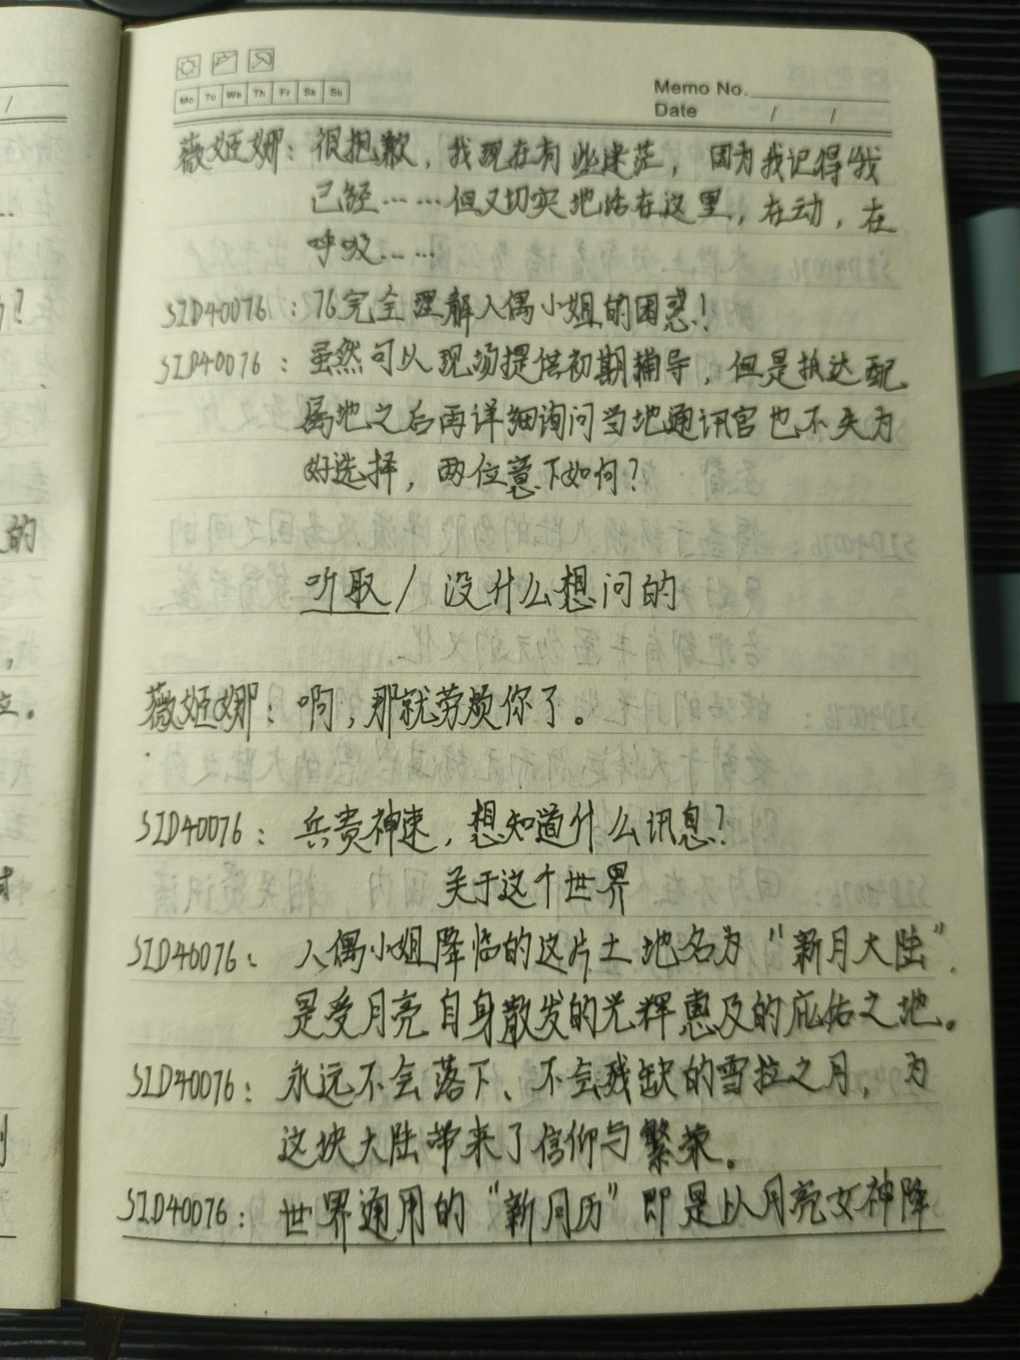 Mo Tu We Th Fr Sa Su
Memo No.
Date / /
薇姬娜：很抱歉，我现在有些迷茫，因为我记得"我
已经……但又切实地站在这里，在动，在
呼吸……
SID40076：76完全理解人偶小姐的困惑！
SID40076：虽然可以现场提供初期辅导，但是抵达配
属地之后再详细询问当地通讯官也不失为
好选择，两位意下如何？
听取 / 没什么想问的
薇姬娜：啊，那就劳烦你了。
SID40076：兵贵神速，想知道什么讯息？
关于这个世界
SID40076：人偶小姐降临的这片土地名为"新月大陆"，
是受月亮自身散发的光辉惠及的庇佑之地。
SID40076：永远不会落下、不会残缺的雪拉之月，为
这块大陆带来了信仰与繁荣。
SID40076：世界通用的"新月历"即是以月亮女神降